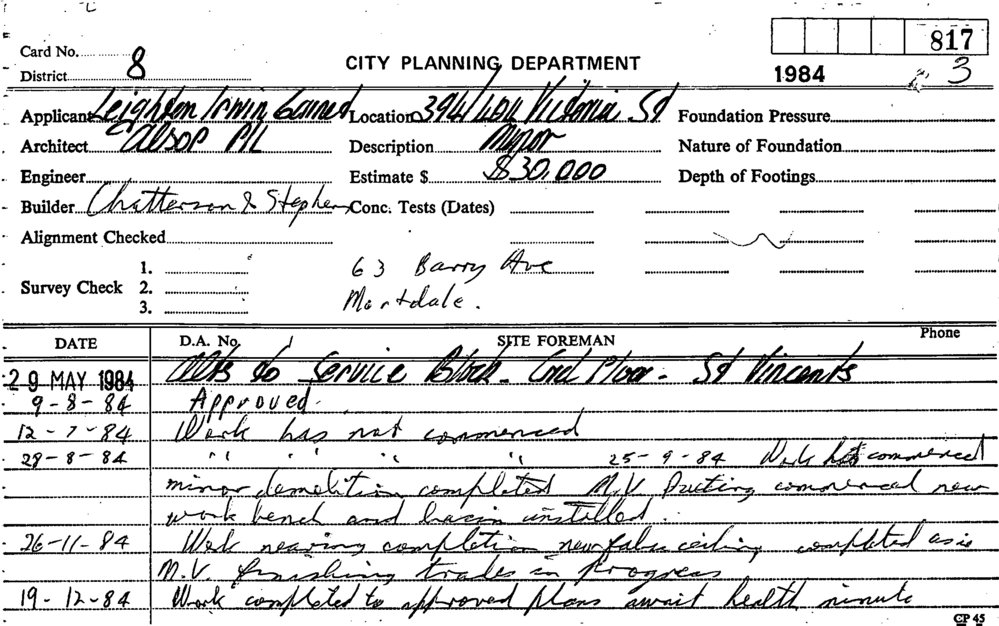 817
Card No. 8 CITY PLANNING DEPARTMENT 1984 3
District
Applicant Leighton Irwin Garnet Location 394/404 Victoria St Foundation Pressure
Architect Alsop P/L Description Minor Nature of Foundation
Engineer Estimate $ $30,000 Depth of Footings
Builder Chatterson & Stephens Conc. Tests (Dates)
Alignment Checked
1. 63 Barry Ave
Survey Check 2. Mortdale.
3.
DATE D.A. No. SITE FOREMAN Phone
29 MAY 1984 Alts to Service Block - Gnd Floor - St Vincents
9-8-84 Approved.
12-7-84 Work has not commenced
28-8-84 " " " " 25-9-84 Work has commenced
minor demolition completed M.V. Ducting commenced new
work bench and basin installed.
26-11-84 Work nearing completion new false ceiling completed as is
M.V. finishing trades in progress
19-12-84 Work completed to approved plans await health minute
CP 45